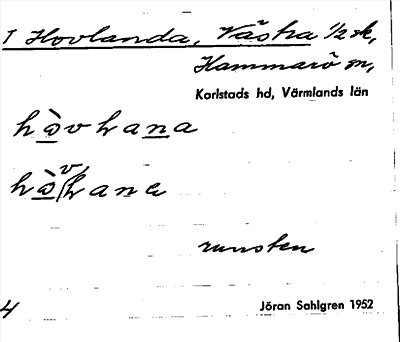 T Hovlanda, Västra 1/2 sk,
Hammarö sn,
Karlstads hd, Värmlands län
hàvhana
hàvhane
runsten
4
Jöran Sahlgren 1952